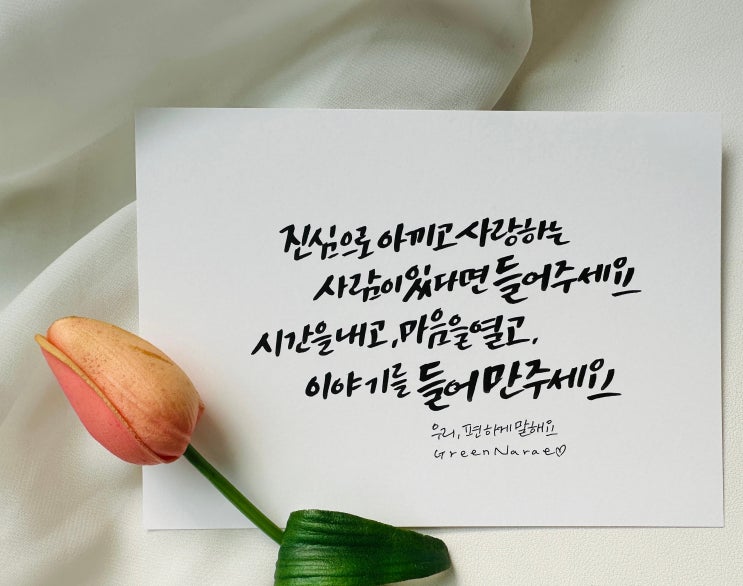 진심으로 아끼고 사랑하는
사람이 있다면 들어주세요
시간을 내고, 마음을 열고,
이야기를 들어만주세요
우리, 편하게 말해요
GreenNarae♡